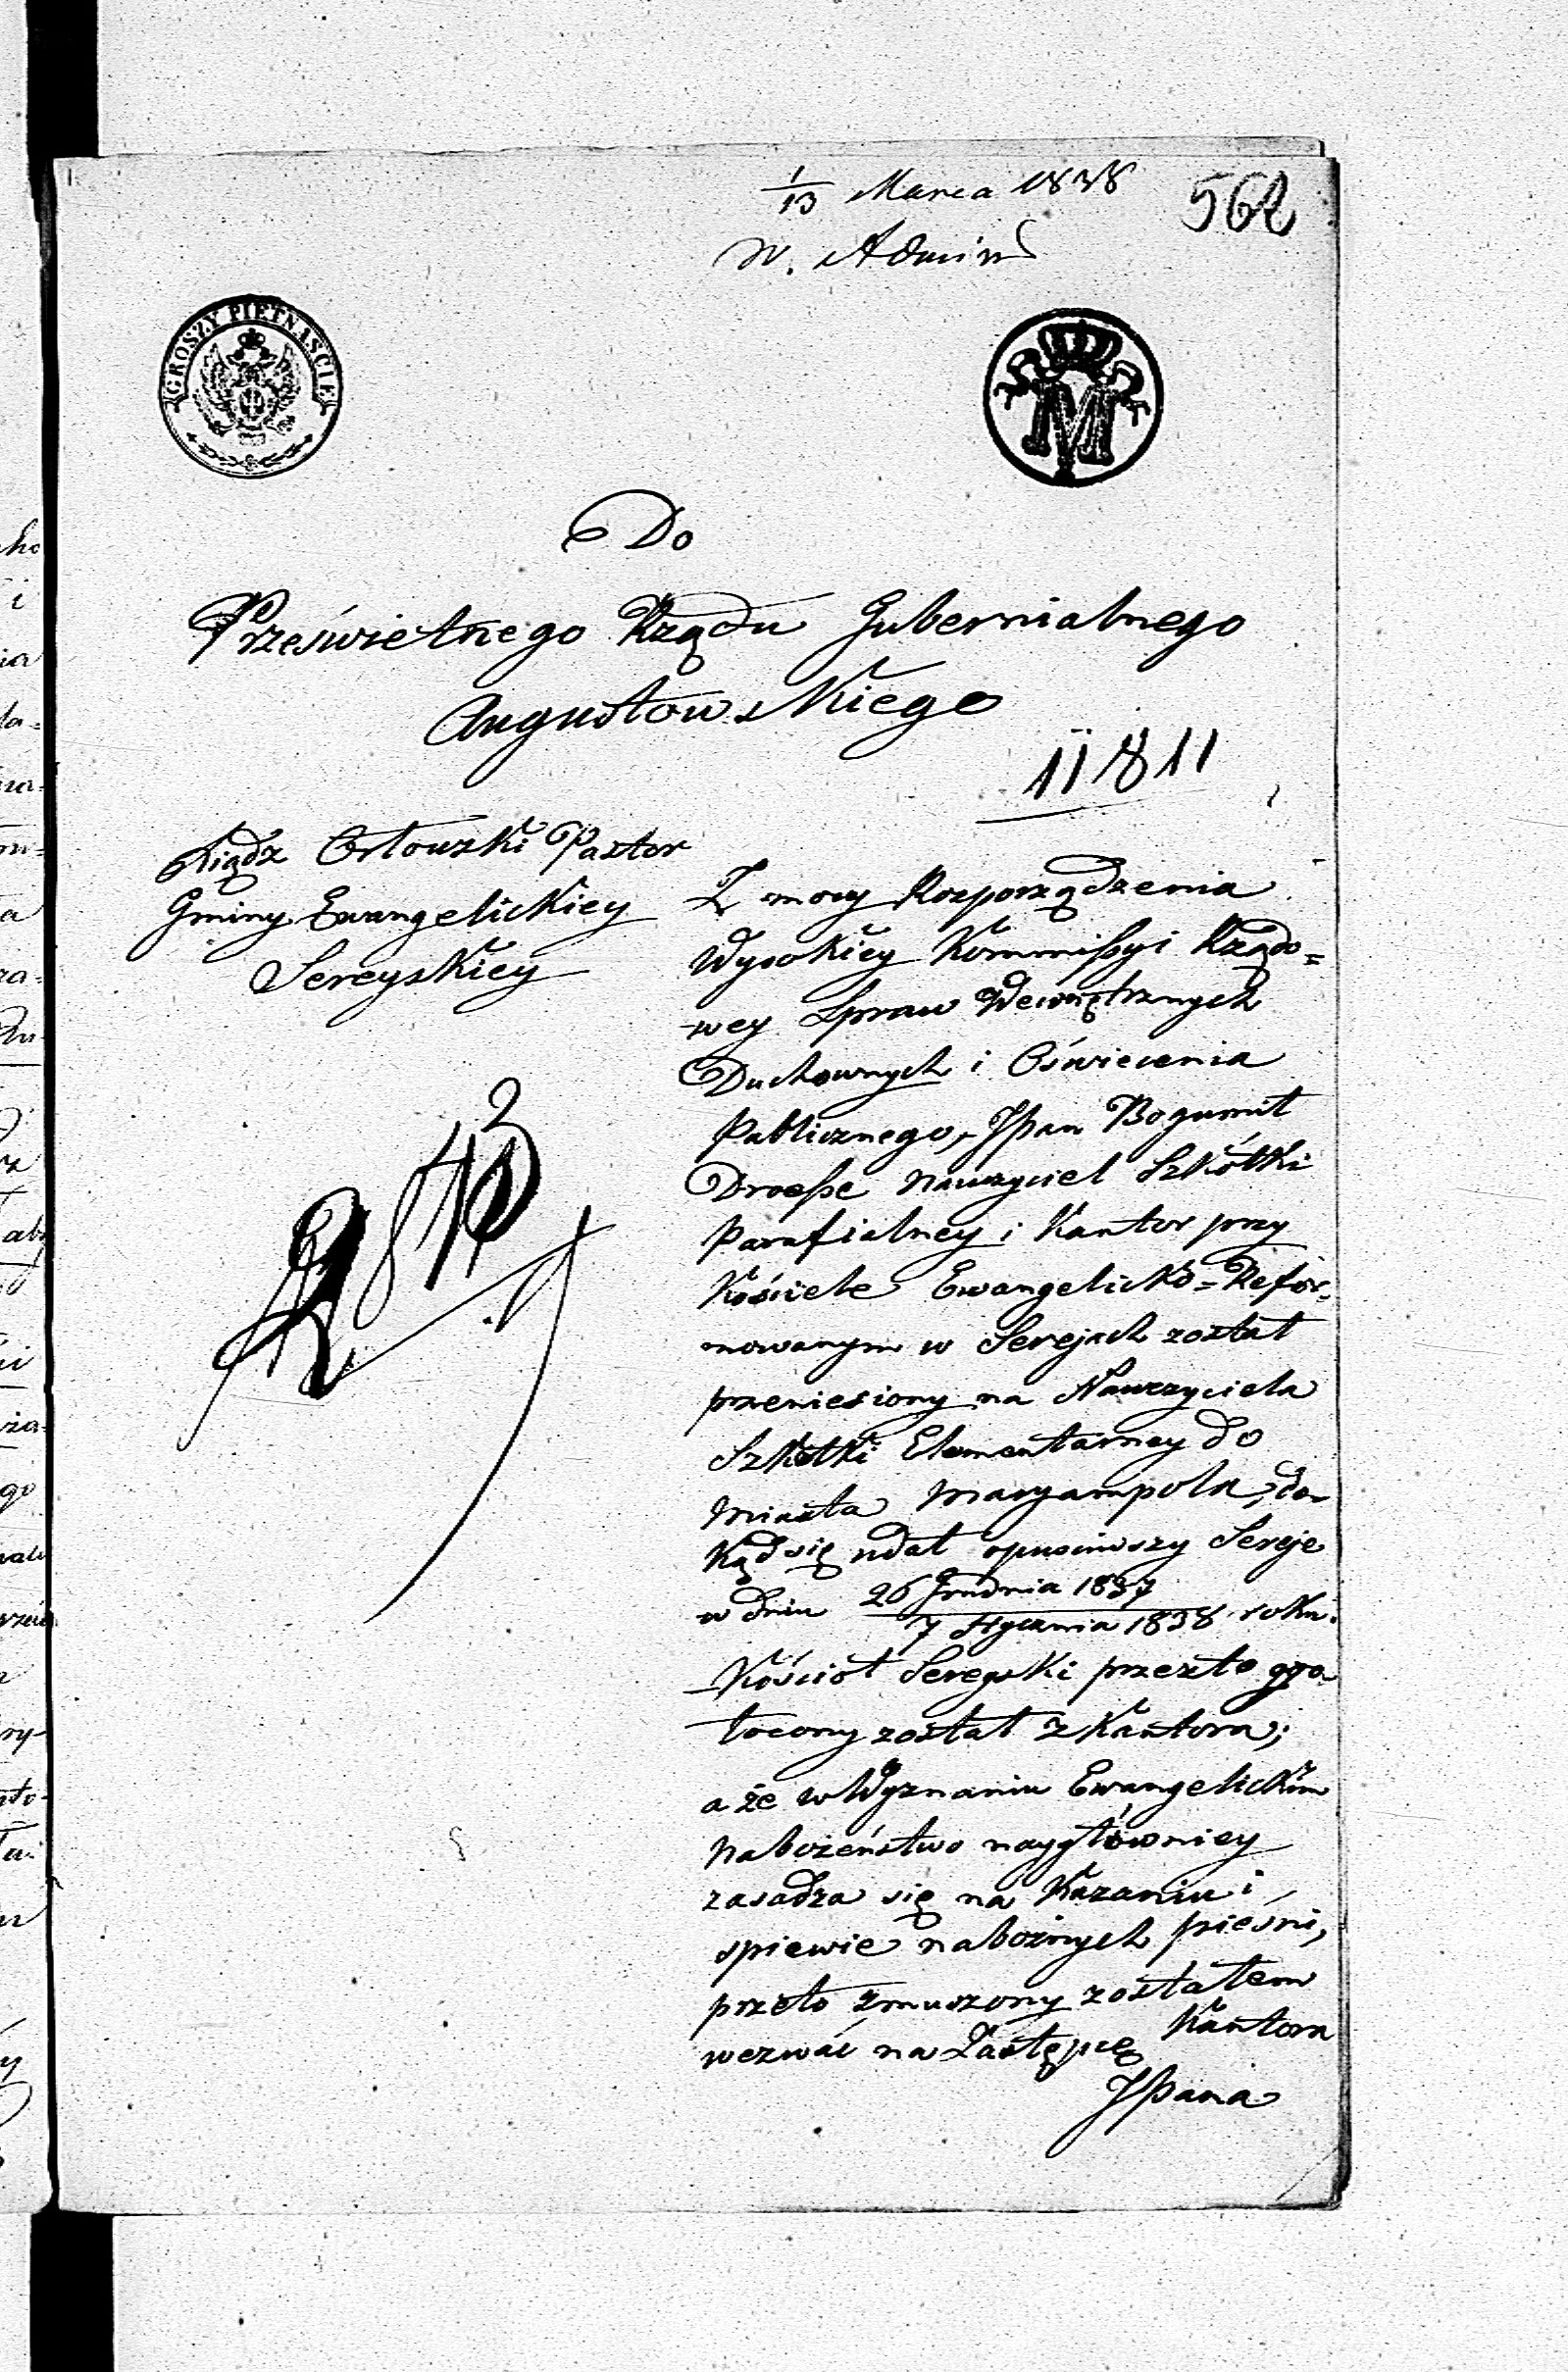 1/13 Marca 1838
562
W. Admin
GROSZY PIETNAŚCIE
M
Do
Prześwietnego Rządu Gubernialnego
Augustowskiego
11811
Xiądz Orłowski Pastor
Gminy Ewangelickiey
Sereyskiey
Z mocy Rozporządzenia
Wysokiey Kommißyi Rządo=
wey Spraw Wewnętrznych
Duchownych i Oświecenia
Publicznego, JPan Bogumił
Droeße Nauczyciel Szkółki
Parafialney i Kantor przy
Kościele Ewangelicko=Refor=
mowanym w Serejach został
przeniesiony na Nauczyciela
Szkółki Elementarney do
Miasta Maryampola, do-
kąd się udał opuściwszy Sereje
w dniu 26 Grudnia 1837 / 7 Stycznia 1838 roku.
Kościół Sereyski przezto ogo-
łocony został z Kantora;
a że w Wyznaniu Ewangelickim
nabożeństwo naygłówniey
zasadza się na Kazaniu i
spiewie nabożnych pieśni,
przeto zmuszony zostałem
wezwać na Zastępcę Kantora
JPana